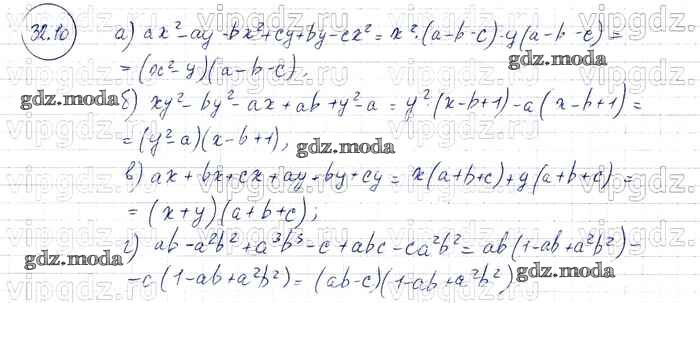 32.10 а) ax² - ay - bx² + cy + by - cx² = x²·(a-b-c) - y(a-b-c) =
= (x²-y)(a-b-c),
б) xy² - by² - ax + ab + y² - a = y²·(x-b+1) - a(x-b+1) =
= (y²-a)(x-b+1),
в) ax + bx + cx + ay + by + cy = x(a+b+c) + y(a+b+c) =
= (x+y)(a+b+c);
г) ab - a²b² + a³b³ - c + abc - ca²b² = ab(1-ab+a²b²) -
- c(1-ab+a²b²) = (ab-c)(1-ab+a²b²)
gdz.moda
gdz.moda
gdz.moda
gdz.moda
gdz.moda
vipgdz.